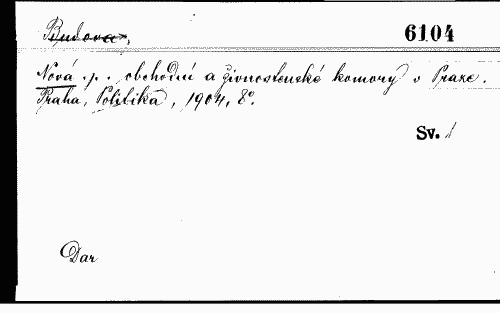 Budova, 6104
Nová .p. obchodní a živnostenské komory v Praze.
Praha, Politika, 1904, 8°.
Sv. 1
Dar